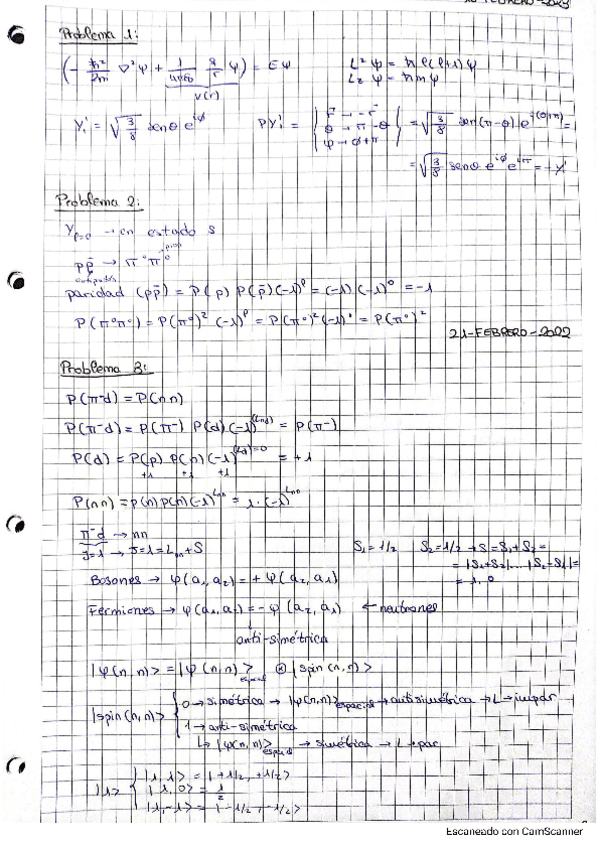 Problema 1:
(-ħ²/2m ∇²ψ + 1/4πε₀ q/r ψ) = Eψ      L²ψ = ħ l(l+1)ψ
V(r)      L_z ψ = ħmψ
Y₁¹ = √(3/8) senθ e^{iφ}      PY₁¹ = { r̄ → -r̄, θ → π-θ, φ → φ+π } = √(3/8) sen(π-θ) e^{i(φ+π)} =
= √(3/8) senθ e^{iφ} e^{iπ} = -Y₁¹
Problema 2:
Y_{l=0} → en estado s
p p̄ → π°π°
paridad (pp̄) = P(p) P(p̄)(-1)^l = (-1)(-1)⁰ = -1
P(π°π°) = P(π°)² (-1)^l = P(π°)²(-1)⁰ = P(π°)²
21-FEBRERO-2022
Problema 3:
P(π⁻d) = P(nn)
P(π⁻d) = P(π⁻) P(d) (-1)^{(Lπd)} = P(π⁻)
P(d) = P(p) P(n) (-1)^{(Ld)=0} = +1
+1 +1 +1
P(nn) = P(n)P(n)(-1)^{Lnn} = 1·(-1)^{Lnn}
π⁻d → nn
J=1 → J=1=L_{nn}+S      S₁=1/2   S₂=1/2 → S=S₁+S₂=
= |S₁+S₂|...|S₂-S₁|=
= 1, 0
Bosones → ψ(a₁,a₂) = +ψ(a₂,a₁)
Fermiones → ψ(a₁,a₂) = -ψ(a₂,a₁)   ← neutrones
anti-simétrica
|ψ(n,n)> = |ψ(n,n)>_{espacial} ⊗ |spin(n,n)>
|spin(n,n)> { 0 → simétrica → |ψ(n,n)>_{espacial} → antisimétrica → L → impar
1 → anti-simétrica
↳ |ψ(n,n)>_{espacial} → simétrica → L → par
|1> { |1,1> = |+1/2,+1/2>
|1,0> = 1/2
|1,-1> = |-1/2,-1/2>
Escaneado con CamScanner